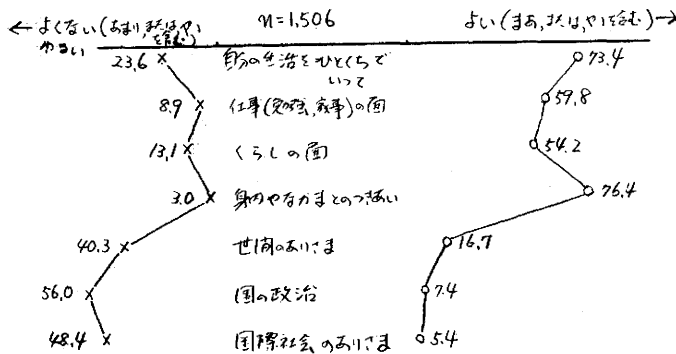 ← よくない(あまり,または,やゝを含む) n=1,506 よい(まあ,または,やゝを含む)→
わるい
23.6 自分の生活をひとくちで 73.4
いって
8.9 仕事(勉強,家事)の面 59.8
13.1 くらしの面 54.2
3.0 身内やなかまとのつきあい 76.4
40.3 世間のありさま 16.7
56.0 国の政治 7.4
48.4 国際社会のありさま 5.4